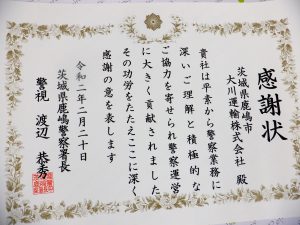 感謝状
茨城県鹿嶋市
大川運輸株式会社 殿
貴社は平素から警察業務に
深いご理解と積極的な
ご協力を寄せられ警察運営
に大きく貢献されました
その功労をたたえここに深く
感謝の意を表します
令和二年二月二十日
茨城県鹿嶋警察署長
警視 渡辺 恭秀